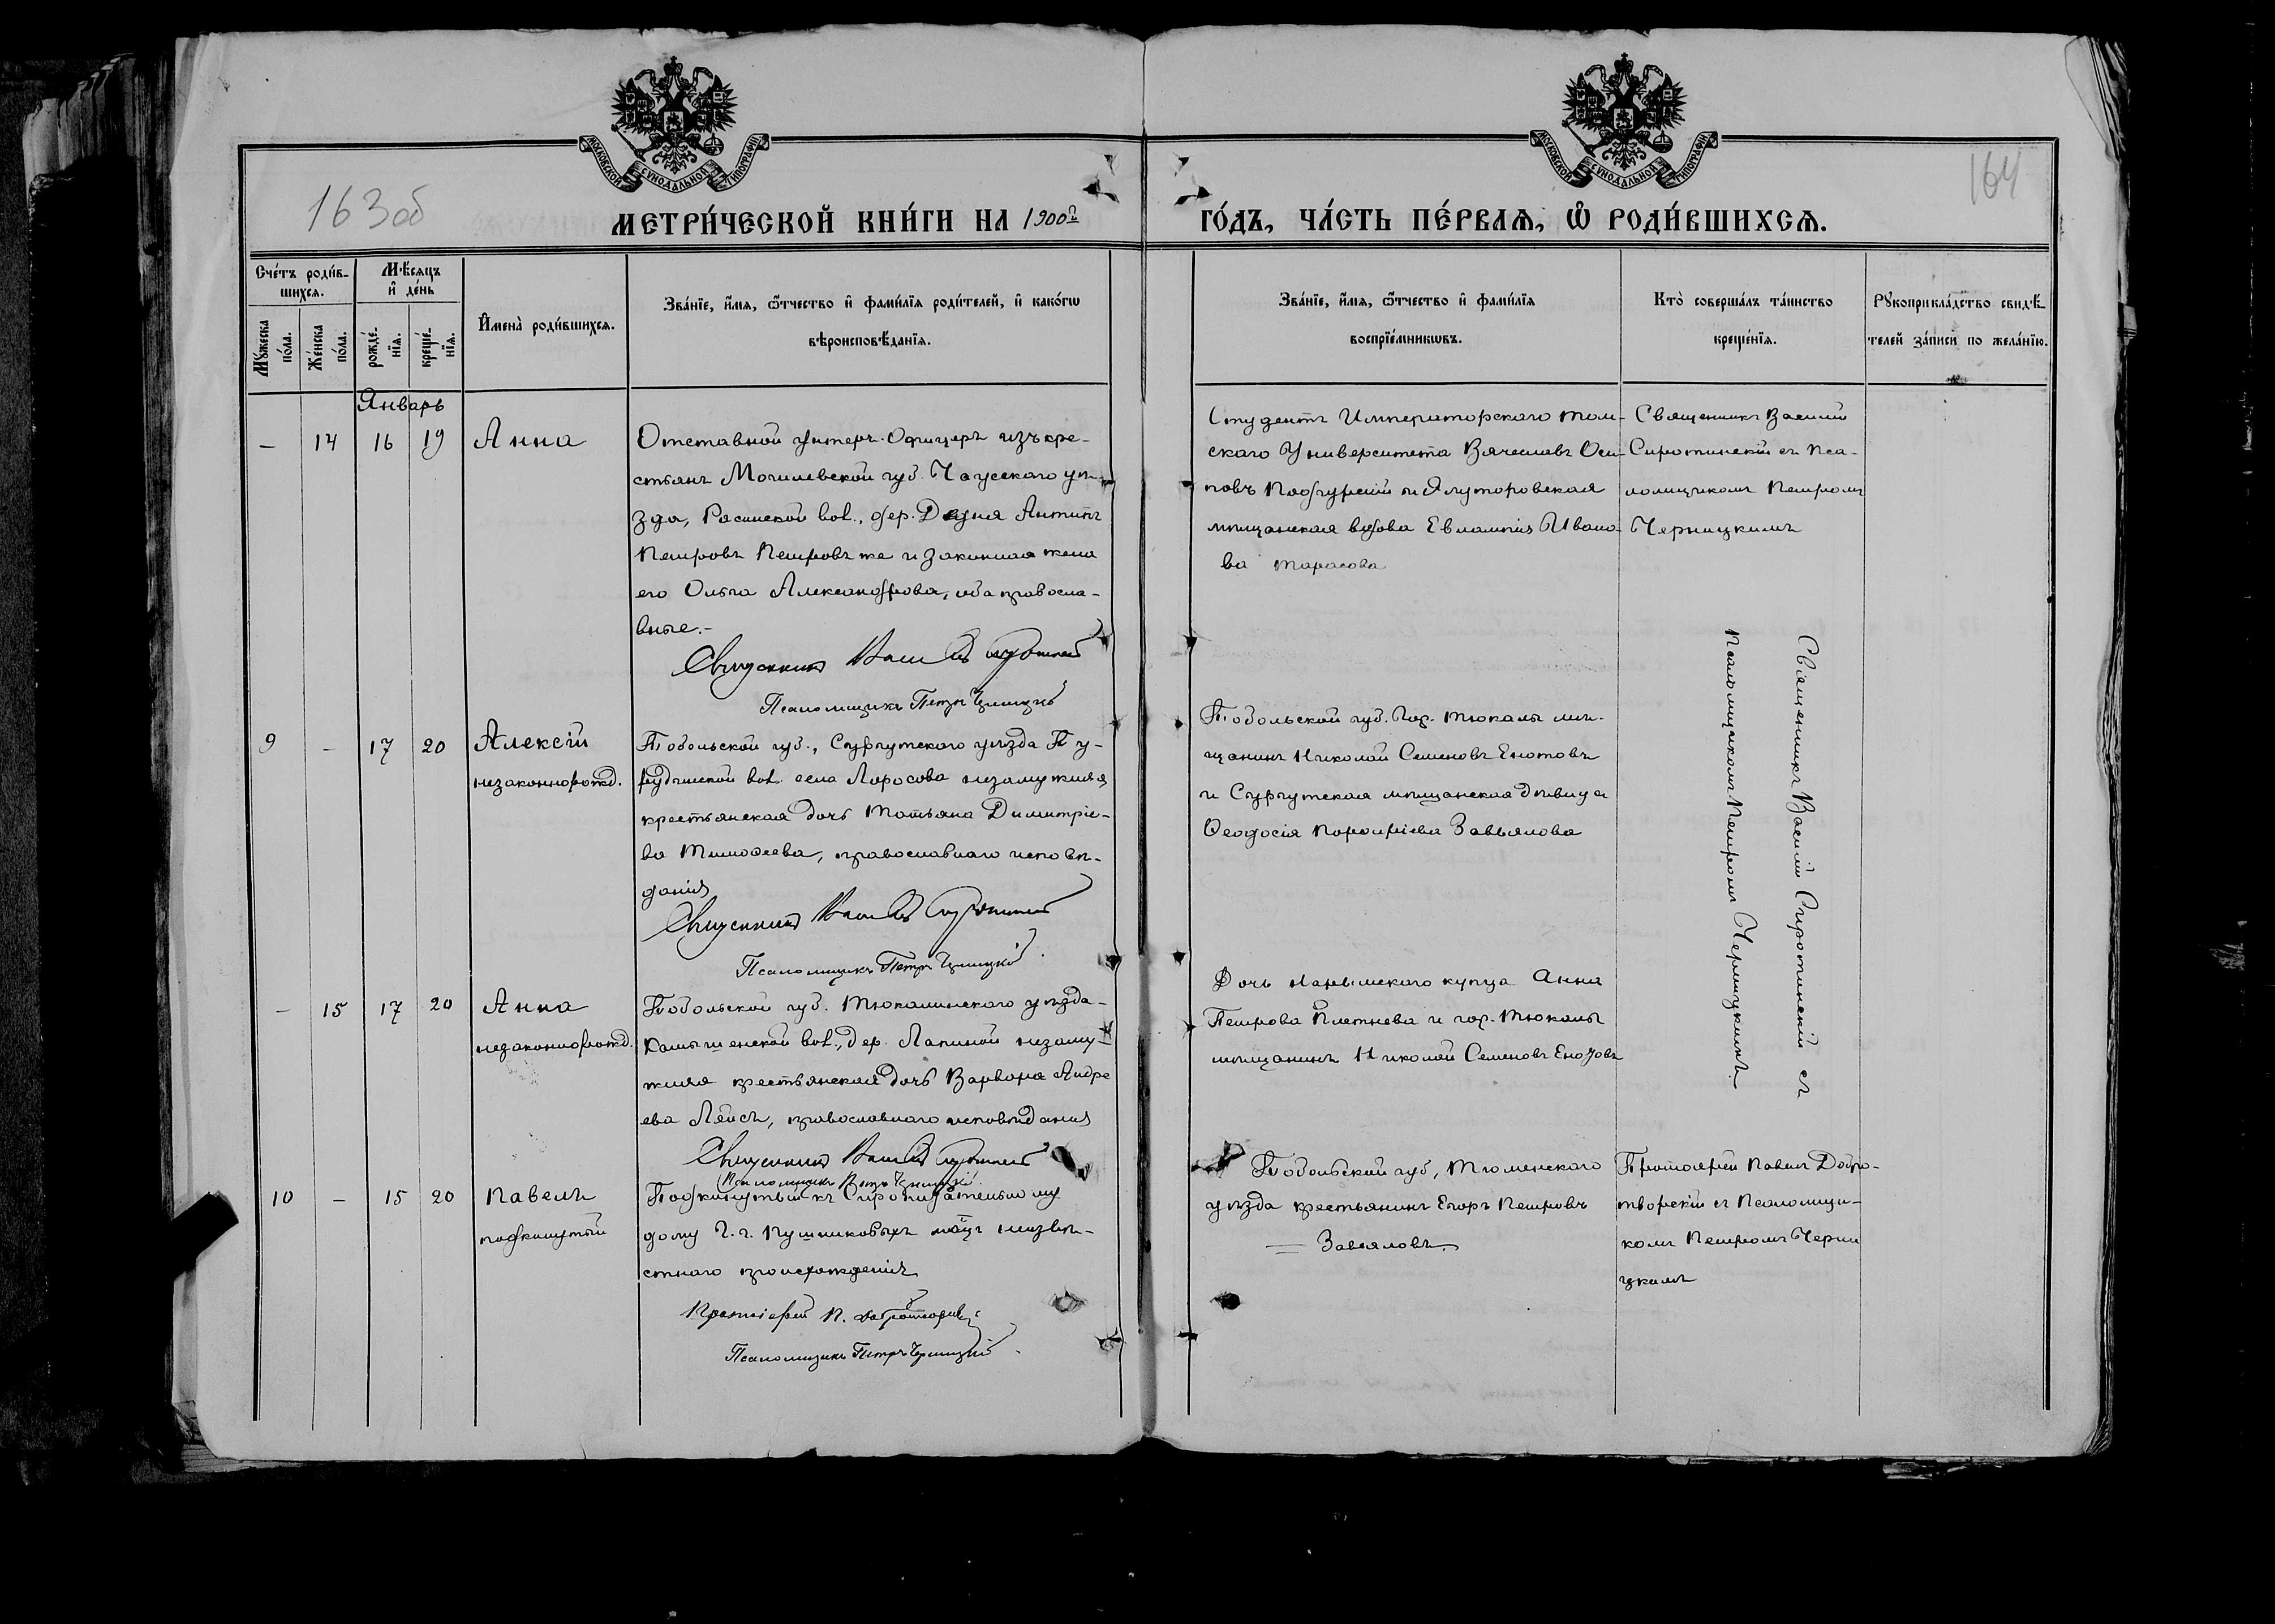 163об
164
МОСКОВСКОЙ СѴНОДАЛЬНОЙ ТИПОГРАФІИ
МОСКОВСКОЙ СѴНОДАЛЬНОЙ ТИПОГРАФІИ
МЕТРИ́ЧЕСКОЙ КНИ́ГИ НА 1900й
ГО́ДЪ, ЧА́СТЬ ПЕ́РВАѦ, Ѽ РОДИ́ВШИХСѦ.
Сче́тъ роди́в-
шихсѧ.
Мꙋ́жеска по́ла.
Же́нска по́ла.
Мѣ́сѧцъ и҆ де́нь
рожде́-
нїѧ.
креще́-
нїѧ.
И҆мена̀ роди́вшихсѧ.
Зва́нїе, и҆́мѧ, ѻ҆́тчество и҆ фами́лїѧ роди́телей, и҆ како́гѡ
вѣроисповѣ́данїѧ.
Зва́нїе, и҆́мѧ, ѻ҆́тчество и҆ фами́лїѧ
воспрїе́мникѡвъ.
Кто̀ соверша́лъ та́инство
креще́нїѧ.
Рꙋкоприкла́дство свидѣ́-
телей за́писи по жела́нїю.
Январь
— 14 16 19 Анна
Отставной унтеръ-Офицеръ изъ кре-
стьянъ Могилевской губ. Чаусскаго уѣ-
зда, Расинской вол., дер. Дедня Антипъ
Петровъ Петровъ же и законная жена
его Ольга Александрова, оба правосла-
вные.-
Священникъ Василій Сиротинскій
Псаломщикъ Петръ Черницкій
Студентъ Императорскаго Том-
скаго Университета Вячеславъ Оси-
повъ и Ялуторовская
мѣщанская вдова Евлампія Ивано-
ва Тарасова
Священникъ Василій
Сиротинскій съ пса-
ломщикомъ Петромъ
Черницкимъ
9 - 17 20 Алексій
незаконнорожд.
Тобольской губ., Сургутскаго уѣзда Ту-
вол. села Ларосова незамужняя
крестьянская дочь Татьяна Димитріе-
ва Тимофеева, православнаго исповѣ-
данія
Священникъ Василій Сиротинскій
Псаломщикъ Петръ Черницкій
Тобольской губ. гор. Тюкалы мѣ-
щанинъ Николай Семеновъ Енотовъ
и Сургутская мѣщанская дѣвица
Ѳеодосія Порфиріева Завьялова
Священникъ Василій Сиротинскій съ
Псаломщикомъ Петромъ Черницкимъ.
— 15 17 20 Анна
незаконнорожд.
Тобольской губ. Тюкалинскаго уѣзда-
Камышенской вол., дер. Лапиной незаму-
жняя крестьянская дочь Варвара Андре
ева Лейсъ, православнаго исповѣданія
Священникъ Василій Сиротинскій
Псаломщикъ Петръ Черницкій
Дочь Нарымскаго купца Анна
Петрова Плотнева и гор. Тюкалы
мѣщанинъ Николай Семеновъ Енотовъ
10 — 15 20 Павелъ
подкинутый
Подкинутый къ Сиропитательному
дому Г.г. Пушниковыхъ неизвѣ-
стнаго происхожденія
Протоіерей П. Добротворскій
Псаломщикъ Петръ Черницкій
Тобольской губ., Тюменскаго
уѣзда крестьянинъ Егоръ Петровъ
Завьяловъ
Протоіерей Павелъ Добро-
творскій съ Псаломщи-
комъ Петромъ Черни
цкимъ